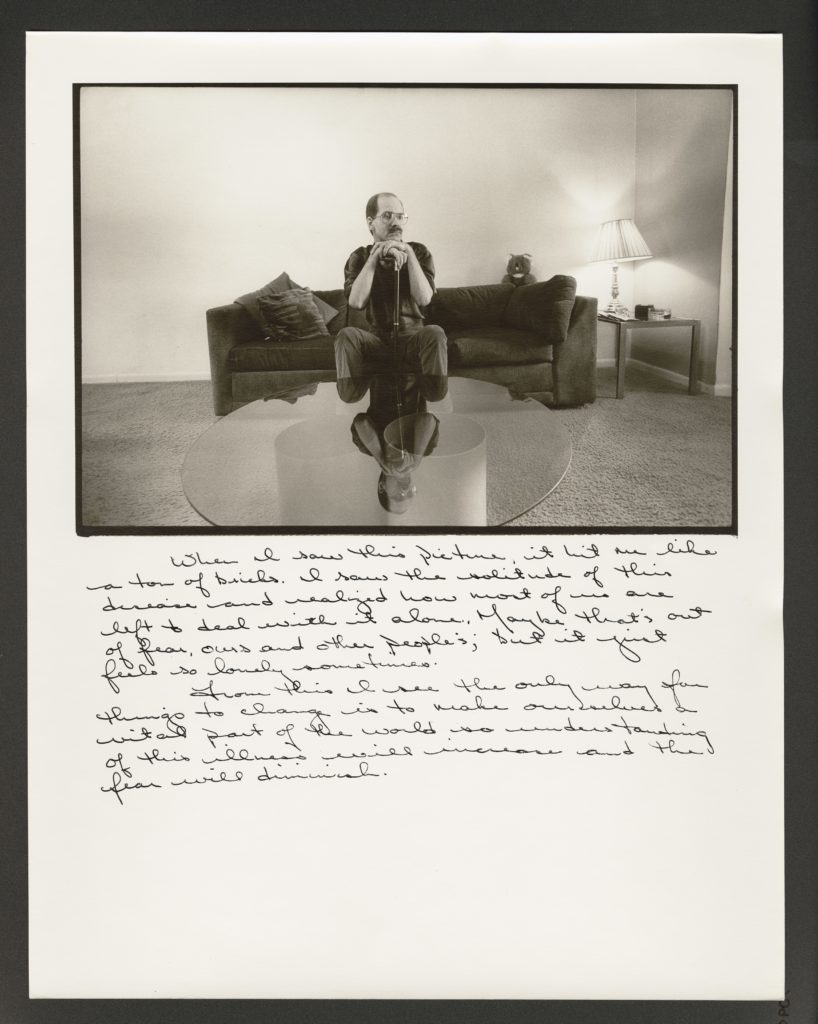 When I saw this picture, it hit me like
a ton of bricks. I saw the solitude of this
disease and realized how most of us are
left to deal with it alone. Maybe that's out
of fear, ours and other people's, but it just
feels so lonely sometimes.
From this I see the only way for
things to change is to make ourselves a
vital part of the world so understanding
of this illness will increase and the
fear will diminish.